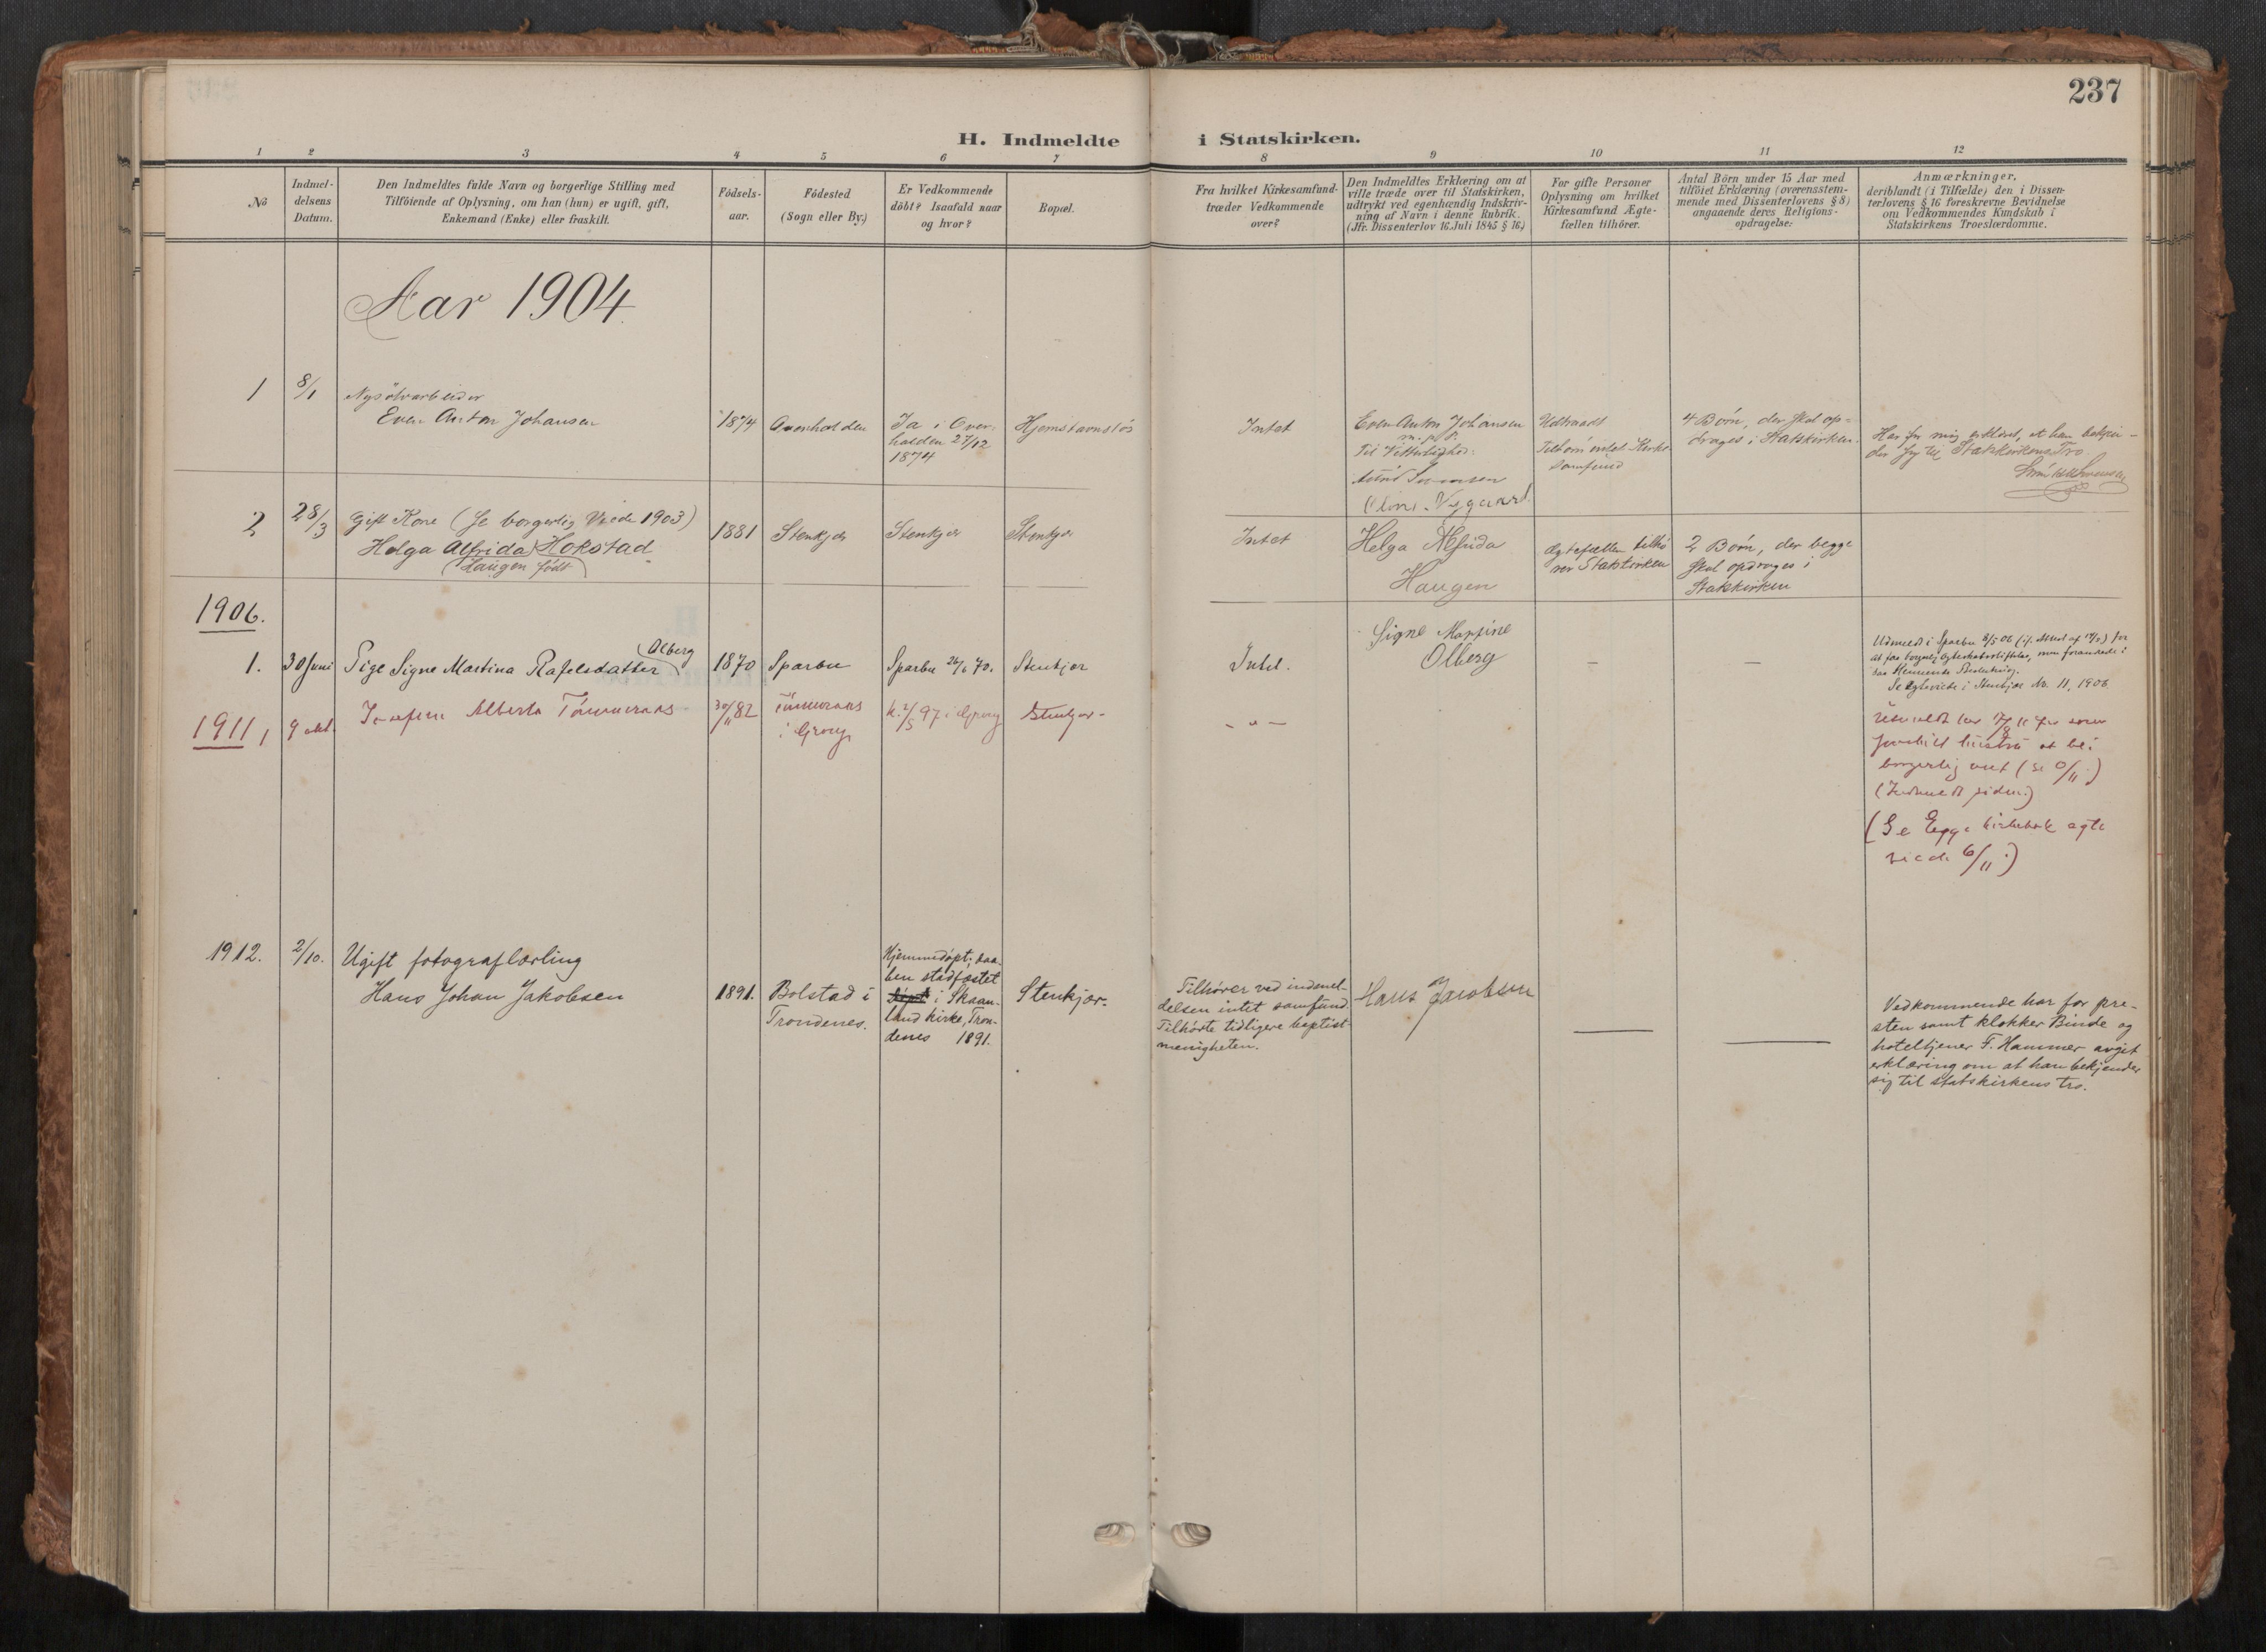 237
H. Indmeldte i Statskirken.
1 2 3 4 5 6 7 8 9 10 11 12
No
Indmel-
delsens
Datum.
Den Indmeldtes fulde Navn og borgerlige Stilling med
Tilföiende af Oplysning, om han (hun) er ugift, gift,
Enkemand (Enke) eller fraskilt.
Födsels-
aar.
Födested
(Sogn eller By.)
Er Vedkommende
döbt? Isaafald naar
og hvor?
Bopæl.
Fra hvilket Kirkesamfund
træder Vedkommende
over?
Den Indmeldtes Erklæring om at
ville træde over til Statskirken,
udtrykt ved egenhændig Indskriv-
ning af Navn i denne Rubrik.
(Jfr. Dissenterlov 16. Juli 1845 § 16.)
For gifte Personer
Oplysning om hvilket
Kirkesamfund Ægte-
fællen tilhörer.
Antal Börn under 15 Aar med
tilföiet Erklæring (overensstem-
mende med Dissenterlovens § 8)
angaaende deres Religions-
opdragelse.
Anmærkninger,
deriblandt (i Tilfælde) den i Dissen-
terlovens § 16 foreskrevne Bevidnelse
om Vedkommendes Kundskab i
Statskirkens Troeslærdomme.
Aar 1904.
1
8/1
Even Anton Johansen
1874
Overhalden
Ja i Over-
halden 27/12
1874
Hjemstavnslös
Intet
Even Anton Johansen
m. p. P.
Til Vitterlighed:
Udtraadt
4 Börn, der skal op-
drages i Statskirken.
Har for mig erklæret, at han bekjen-
der sig til Statskirkens Tro.
2
28/3
Gift Kone (se borgerlig Viede 1903)
Helga Alfrida Hokstad
(Haugen født)
1881
Stenkjær
Stenkjær
Stenkjær
Intet
Helga Alfrida
Haugen
Ægtefællen tilhö
rer Statskirken
2 Börn, der begge
skal opdrages i
Statskirken
1906.
1.
30 Juni
Olberg
Pige Signe Martina Rafelsdatter
1870
Sparbu
Sparbu 26/6 70.
Stenkjær
Intet.
Signe Martine
Olberg
—
—
Udmeldt i Sparbu 8/5 06
Se Ægteviede i Stenkjær No. 11, 1906.
1911,
9 okt.
Josefine Alberta Tömmeraas
30/11 82
Tömmeraas
i Grong
k. 2/5 97 i Grong
Stenkjær-
- " -
borgerlig viet
(Indmeldt siden.)
(Se Egge kirkebok ægte
viede 6/11.)
1912.
2/10.
Ugift fotograflærling
Hans Johan Jakobsen
1891.
Bolstad i
Trondenes.
Hjemmedøpt; daa-
ben stadfæstet
i Skaan-
land kirke, Tron-
denes 1891.
Stenkjær.
Tilhører ved indmel-
delsen intet samfund.
Tilhørte tidligere baptist-
menigheten.
Hans Jacobsen
Vedkommende har for pre-
sten samt klokker Binde og
hoteltjener F. Hammer avgit
erklæring om at han bekjender
sig til statskirkens tro.